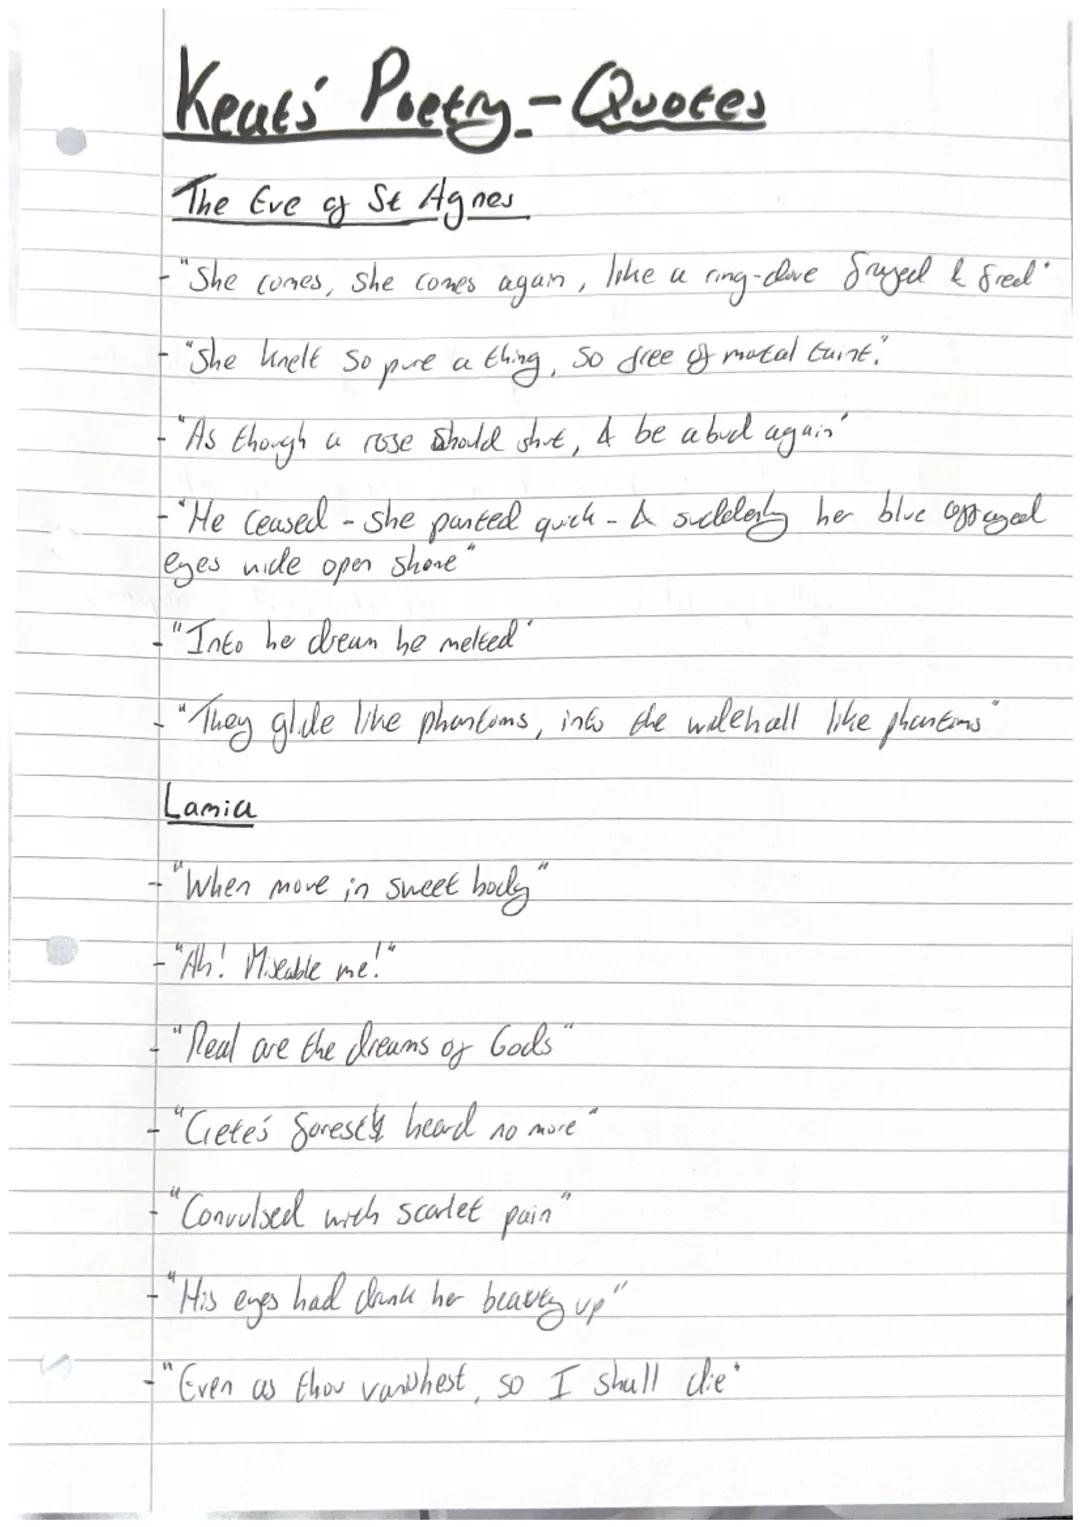 Keats' Poetry - Quotes
The Eve of St Agnes
- "She comes, she comes again, like a ring-dove frayed & fled"
- "She knelt so pure a thing, so free of mortal taint."
- "As though a rose should shut, & be a bud again"
- "He ceased - she panted quick - & suddenly her blue affrayed
eyes wide open shone"
- "Into her dream he melted"
- "They glide like phantoms, into the wide hall like phantoms"
Lamia
- "When move in sweet body"
- "Ah! Miserable me!"
- "Real are the dreams of Gods"
- "Crete's forests heard no more"
- "Convulsed with scarlet pain"
- "His eyes had drank her beauty up"
- "Even as thou vanishest, so I shall die"